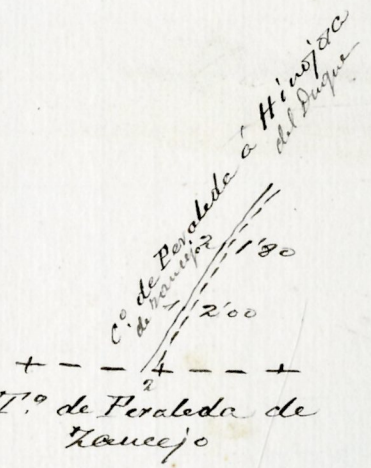 C.º de Peraleda á Hinojosa
de Zaucejo
del Duque
2 1'80
1 2'00
2
T.º de Peraleda de
Zaucejo